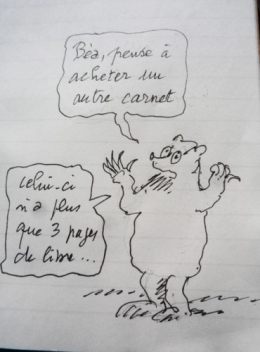 Béa, pense à
acheter un
autre carnet
celui-ci
n'a plus
que 3 pages
de libre...